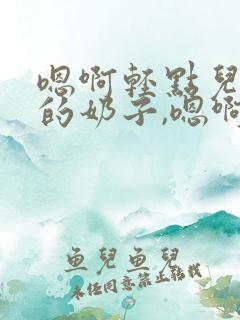 嗯啊轻點兒
的奶子,嗯啊
鱼兒鱼兒
未经同意禁止转载